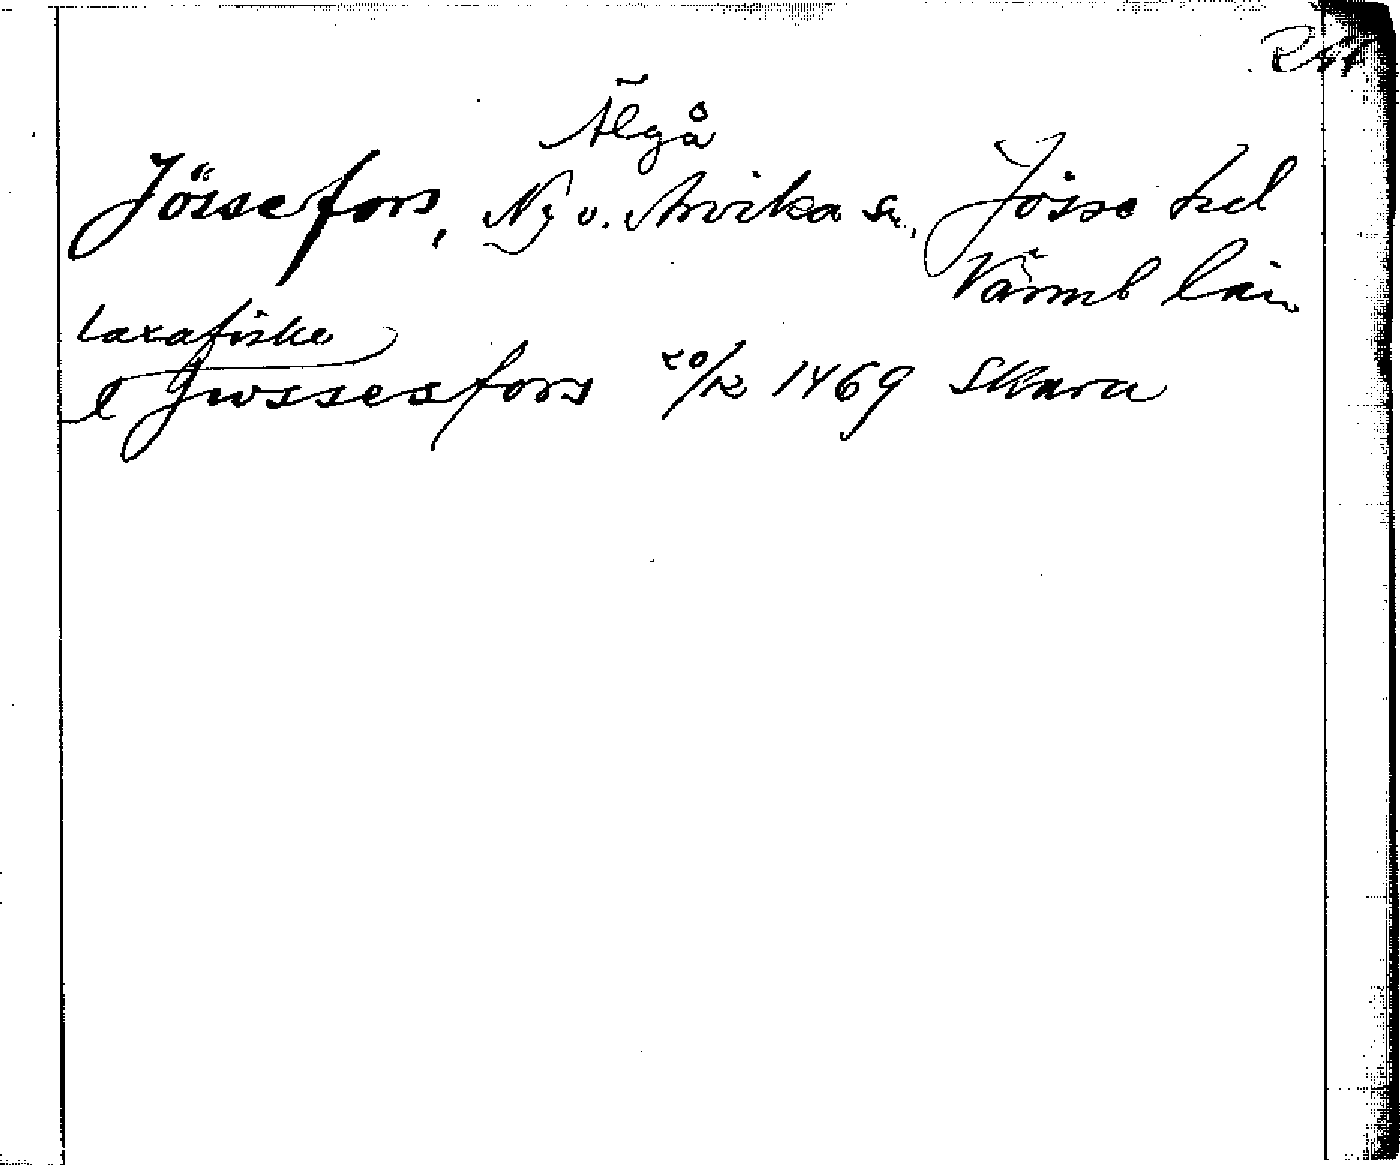 RAA
Älgå
Jössefors, Ny o. Arvika sn., Jösse hd
Värml län
laxafiske
l Jwssesfors 20/12 1469 Skara